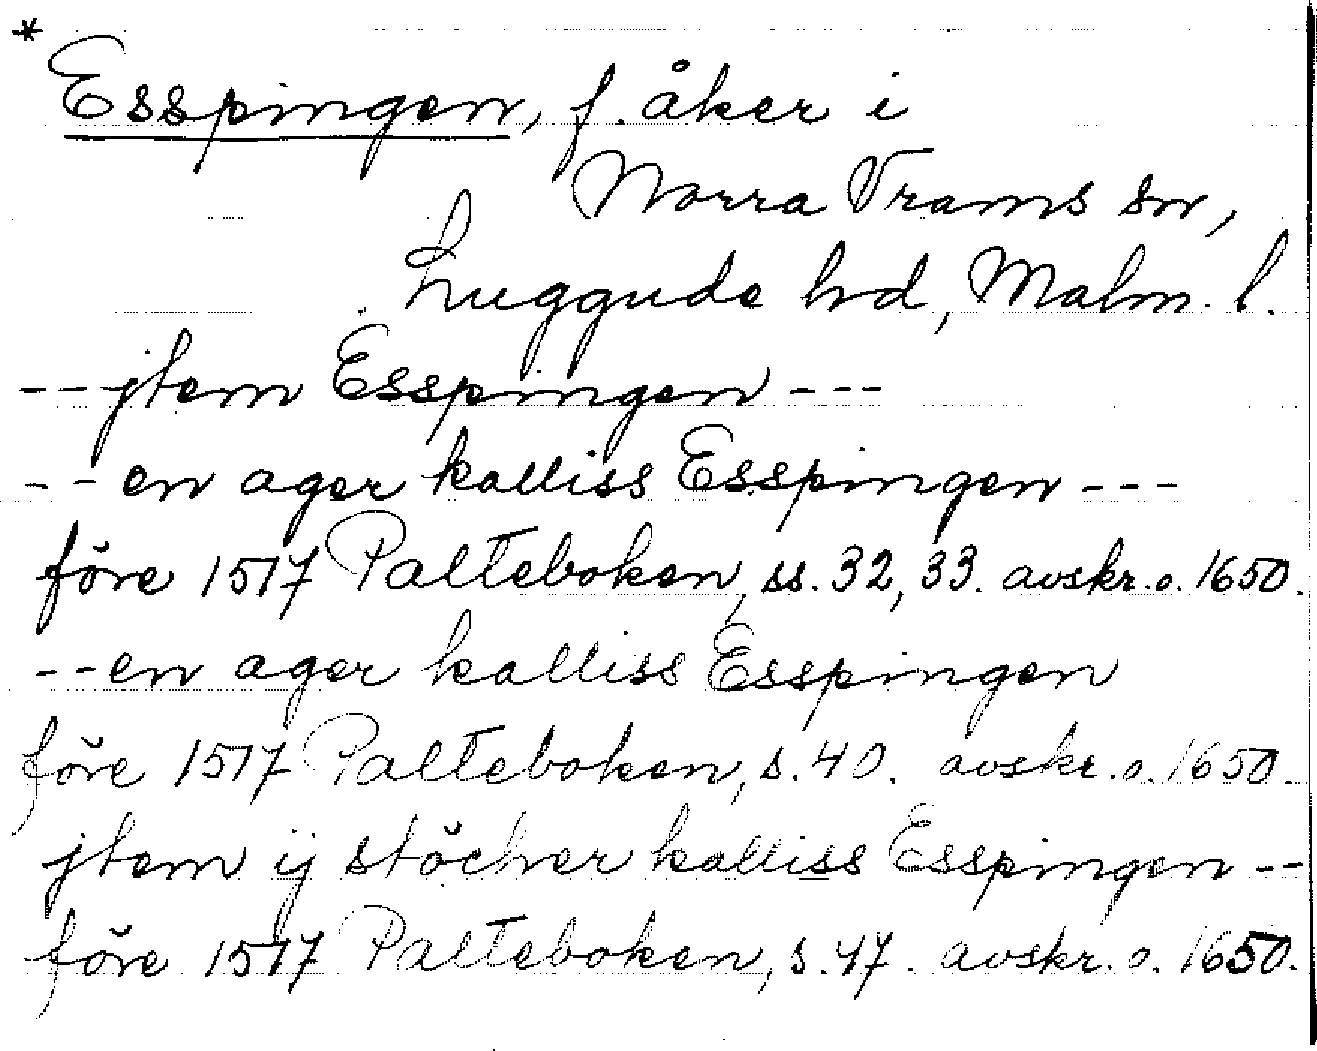 *
Esspingen, f. åker i
Norra Vrams sn,
Luggude hd, Malm. l.
-- jtem Esspingen ---
-- en ager kalliss Esspingen ---
före 1517 Palteboken, ss. 32, 33. avskr. o. 1650.
-- en ager kalliss Esspingen
före 1517 Palteboken, s. 40. avskr. o. 1650.
jtem ij stöcher kalliss Esspingen --
före 1517 Palteboken, s. 47. avskr. o. 1650.